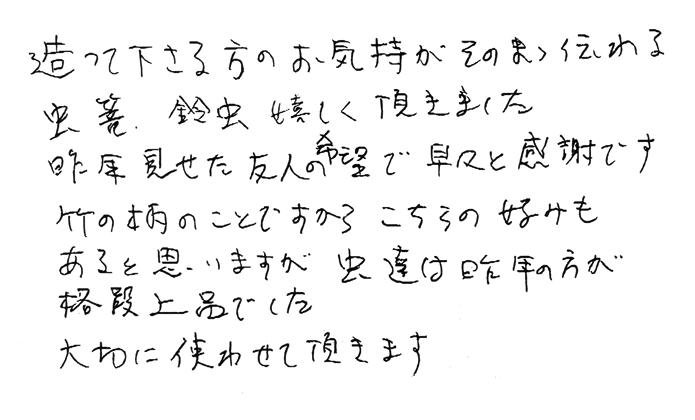 造って下さる方のお気持がそのまゝ伝わる
虫篭、鈴虫 嬉しく頂きました
昨年見せた友人の希望で早々と感謝です
竹の柄のことですから こちらの好みも
あると思いますが 虫達は昨年の方が
格段上品でした
大切に使わせて頂きます